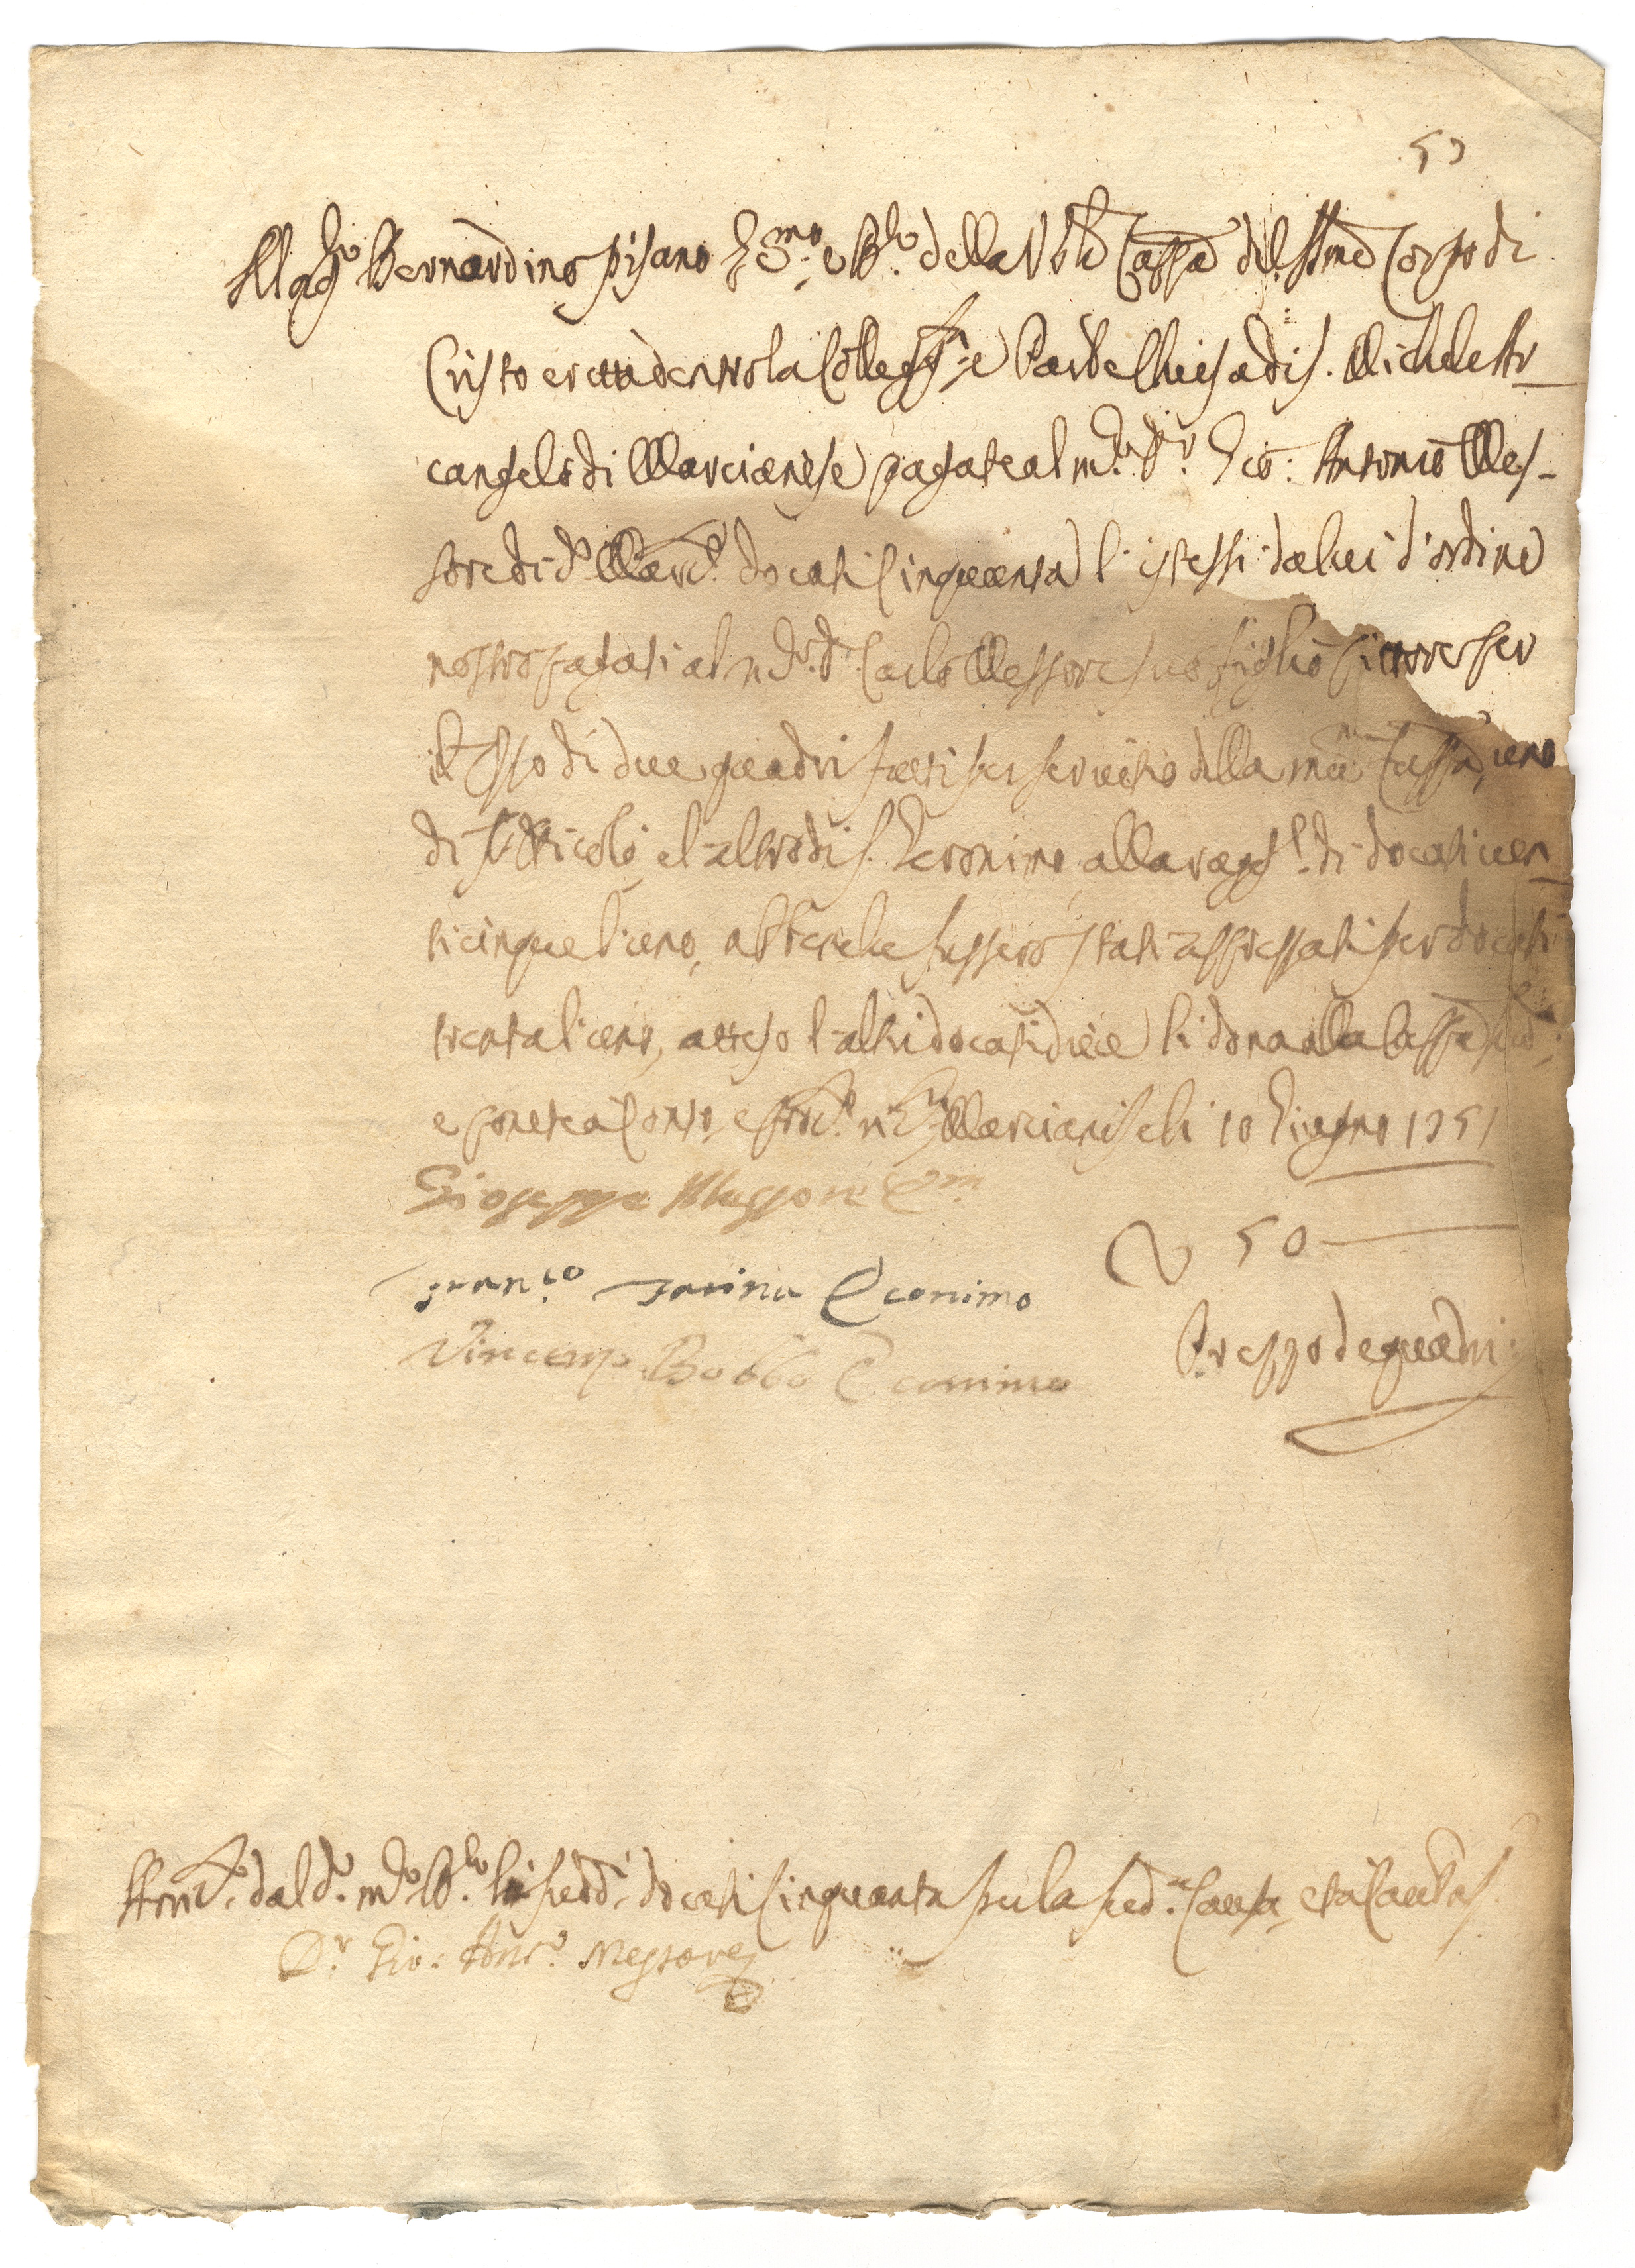 53
Mag.co Bernardino Pisano Ec.mo e B.lo della V.le Cappa del SSmo Corpo di
Cristo eretta dentro la Colleg.ta e Par.le Chiesa di S. Michele Ar-
cangelo di Marcianese pagate al m.co D.r Gio: Antonio Mes-
sore di d.o Marc.e docati Cinquanta l'istessi da lui d'ordine
nostro pagati al m.co D.r Carlo Messore suo figlio pittore per
il prezzo di due quadri fatti per servitio della med.ma Cappa, uno
di S. Nicolò, el'altro di S. Geronimo alla ragg.e di docati ven-
ticinque l'uno, abbenche fussero stati apprezzati per docati
trenta l'uno, atteso l'altri docati diece li dona alla Cappa sud.a
e ponete a Conto, Marcianise li 10 Giugno 1751
Gioseppe Messore Ec.mo
Fran.co Farina Economo
Vincenzo Bobbo Economo
D 50
Prezzo de quadri
dal d.o m.co B.lo li sudd.i docati Cinquanta per la sud.a Causa, et a Cautela
D.r Gio: Ant.o Messore